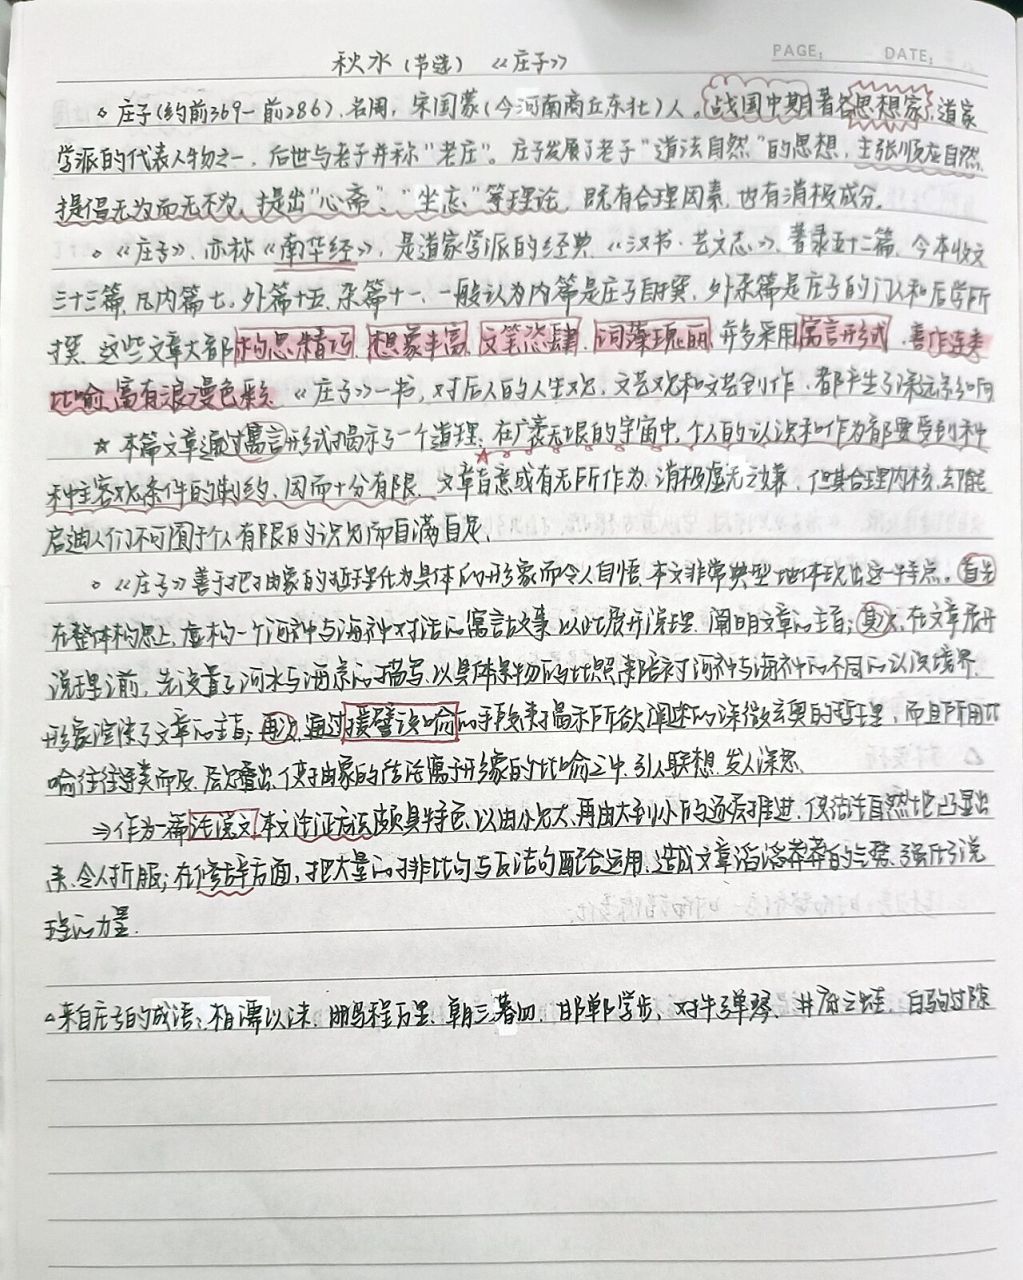 秋水（节选） 《庄子》
PAGE: DATE:
。庄子（约前369-前286）、名周，宋国蒙（今河南商丘东北）人。战国中期著名思想家，道家
学派的代表人物之一，后世与老子并称"老庄"。庄子发展了老子"道法自然"的思想，主张顺应自然，
提倡无为而无不为，提出"心斋"、"坐忘"等理论，既有合理因素，也有消极成分。
。《庄子》，亦称《南华经》，是道家学派的经典，《汉书·艺文志》，著录五十二篇，今本收文
三十三篇，凡内篇七，外篇十五，杂篇十一，一般认为内篇是庄子自撰，外杂篇是庄子的门人和后学所
撰，这些文章大都构思精巧，想象丰富，文笔恣肆，词藻瑰丽，并多采用寓言形式，善作连类
比喻，富有浪漫色彩，《庄子》一书，对后人的人生观，文艺观和文艺创作，都产生了深远影响
☆ 本篇文章通过寓言形式揭示了一个道理：在广袤无垠的宇宙中，个人的认识和作为都要受到种
种主客观条件的制约，因而十分有限，文章旨意或有无所作为，消极虚无之嫌，但其合理内核，却能
启迪人们不可囿于个人有限的识见而自满自足，
。《庄子》善于把抽象的哲理化为具体的形象而令人自悟，本文非常典型地体现出这一特点，首先
在整体构思上，虚构一个河神与海神对话的寓言故事，以此展开说理，阐明文章的主旨；其次，在文章展开
说理之前，先设置了河水与海景的描写，以具体景物的比照来陪衬河神与海神的不同的认识境界，
形象渲染了文章的主旨；再次，通过援譬设喻的手段来揭示所欲阐述的深微玄奥的哲理，而且所用比
喻往往连类而及，层见叠出，使抽象的结论寓于形象的比喻之中，引人联想，发人深思，
⇒作为一篇论说文，本文论证方法颇具特色，以由小见大，再由大到小的逐层推进，使结论自然地凸显出
来，令人折服；在修辞方面，把大量的排比句与反诘句配合运用，造成文章滔滔莽莽的气势，强化了说
理的力量.
△来自庄子的成语：相濡以沫，鹏程万里，朝三暮四，邯郸学步，对牛弹琴，井底之蛙，白驹过隙